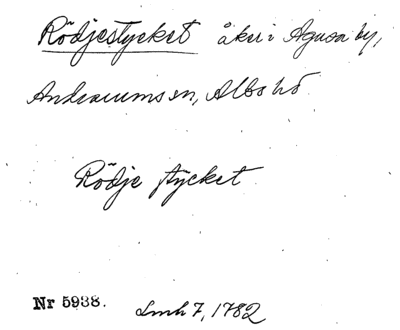 Rödjestycket åker i Agusa by,
Andrarums sn, Albo hd
Rödje stycket
Nr 5938.
Lmh 7, 1782